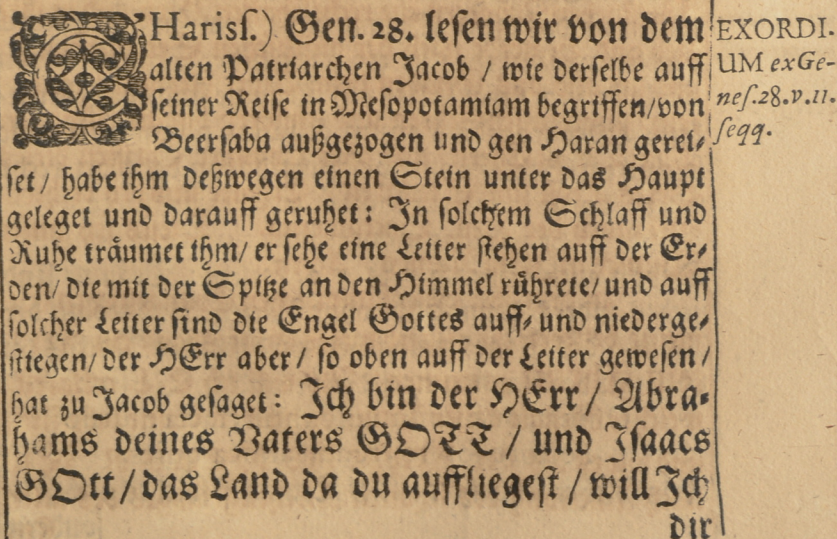 CHarisſ.) Gen. 28. leſen wir von dem
alten Patriarchen Jacob / wie derſelbe auff
ſeiner Reiſe in Meſopotamiam begriffen/von
Beerſaba außgezogen und gen Haran gerei⸗
ſet / habe ihm deßwegen einen Stein unter das Haupt
geleget und darauff geruhet: In ſolchem Schlaff und
Ruhe träumet ihm/ er ſehe eine Leiter ſtehen auff der Er⸗
den/ die mit der Spitze an den Himmel rührete/ und auff
ſolcher Leiter ſind die Engel Gottes auff⸗ und niederge⸗
ſtiegen/ der HErr aber / ſo oben auff der Leiter geweſen /
hat zu Jacob geſaget: Ich bin der HErr / Abra⸗
hams deines Vaters GOTT / und Iſaacs
GOtt / das Land da du auffliegeſt / will Ich
dir
EXORDI-
UM ex Ge-
neſ. 28. v. 11.
ſeqq.